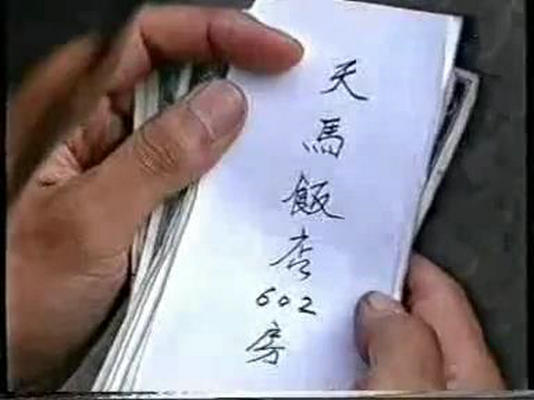 天馬飯店602房